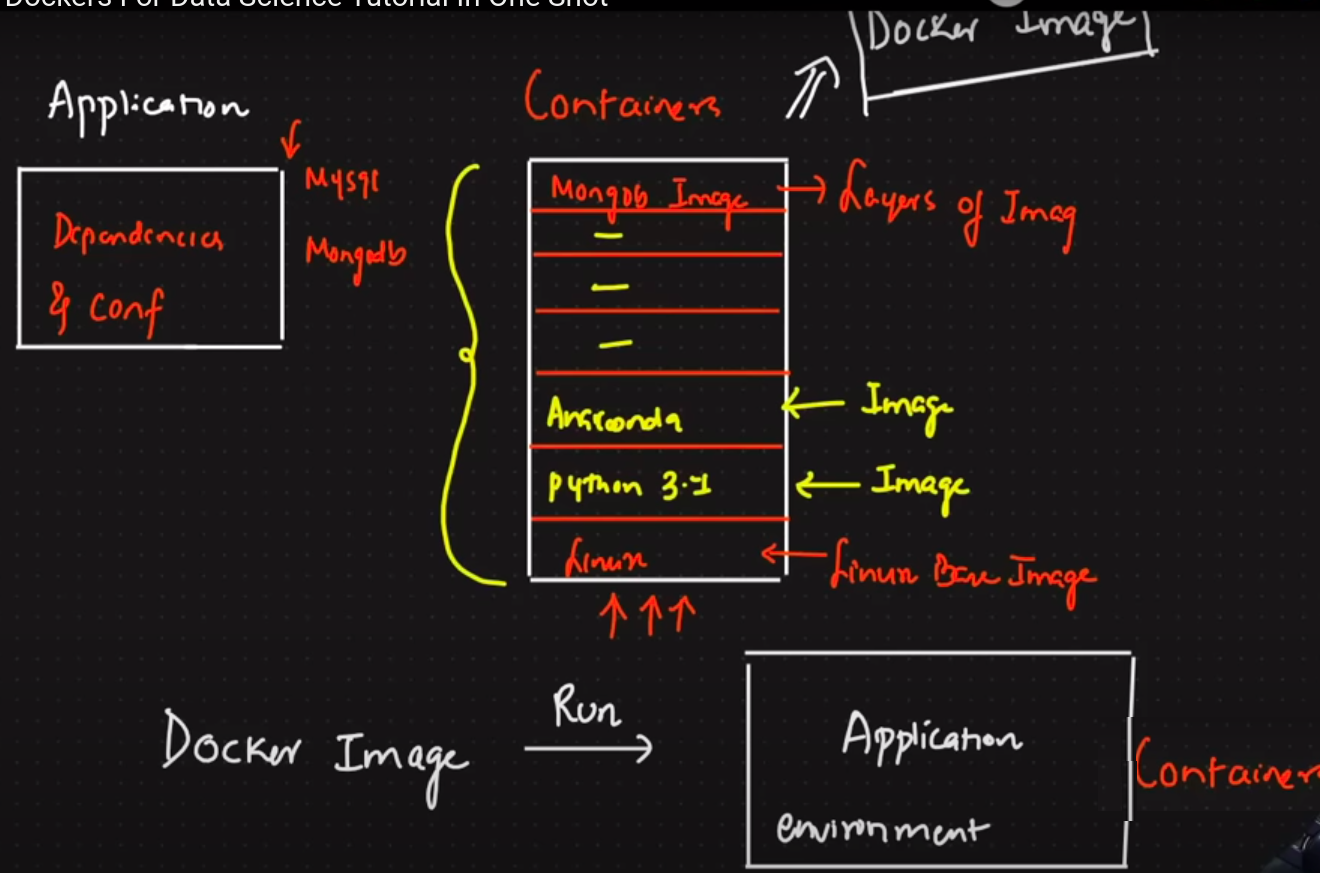 Dockers For Data Science Tutorial In One Shot
Docker Image
Application
Containers
Mysql
Mongodb
Dependencies
& Conf
Mongodb Image
Layers of Imag
Anaconda
Image
python 3.1
Image
Linux
Linux Base Image
Docker Image
Run
Application
environment
Containers